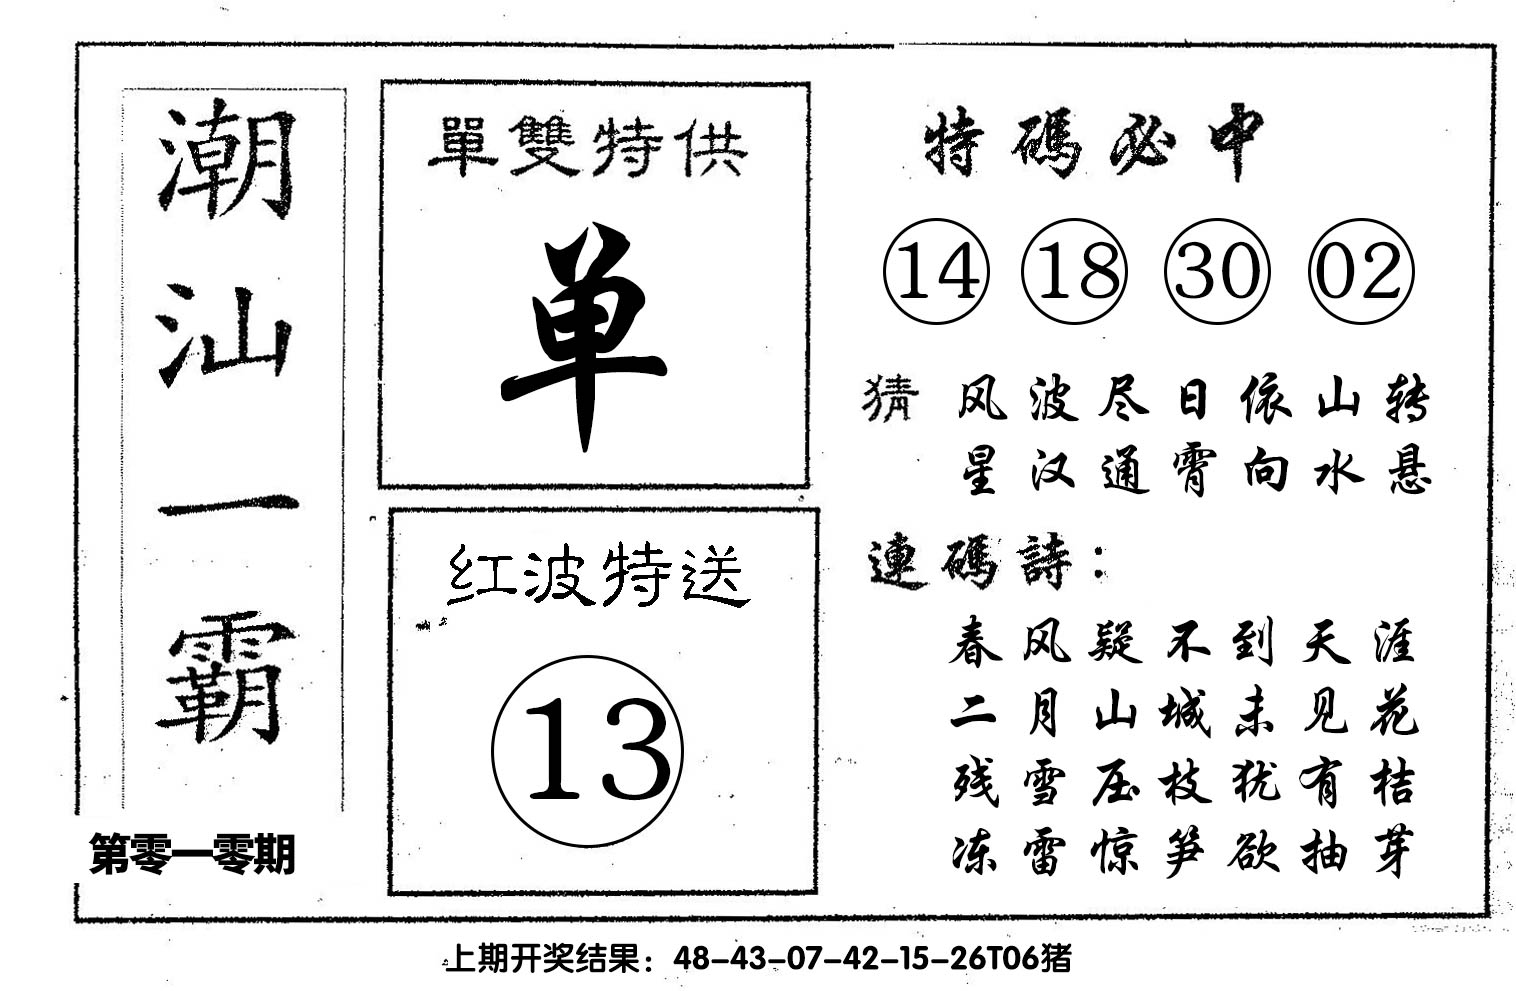 潮汕一霸
第零一零期
單雙特供
单
红波特送
13
特碼必中
14 18 30 02
猜 风波尽日依山转
星汉通霄向水悬
連碼詩：
春风疑不到天涯
二月山城未见花
残雪压枝犹有桔
冻雷惊笋欲抽芽
上期开奖结果：48-43-07-42-15-26T06猪